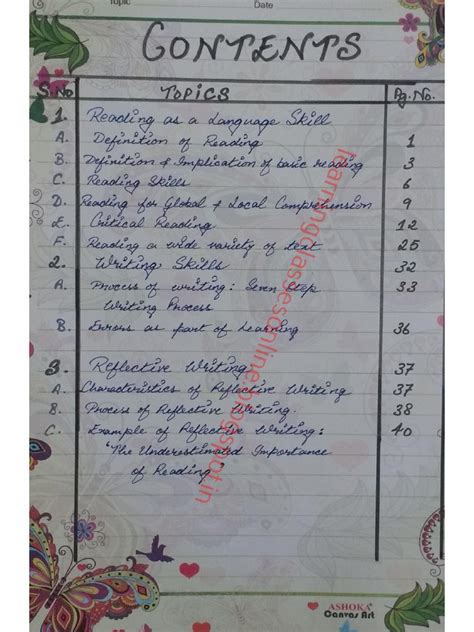 Topic Date
CONTENTS
S.No TOPICS Pg. No.
1. Reading as a Language Skill
A. Definition of Reading 1
B. Definition & Implication of basic reading 3
C. Reading Skills 6
D. Reading for Global & Local Comprehension 9
E. Critical Reading 12
F. Reading a wide variety of text 25
2. Writing Skills 32
A. Process of writing: Seven Step 33
Writing Process
B. Errors as part of Learning 36
3. Reflective Writing 37
A. Characteristics of Reflective Writing 37
B. Process of Reflective Writing. 38
C. Example of Reflective Writing: 40
"The Underestimated Importance
of Reading"
learningclassesonline.blogspot.in
ASHOKA
Canvas Art